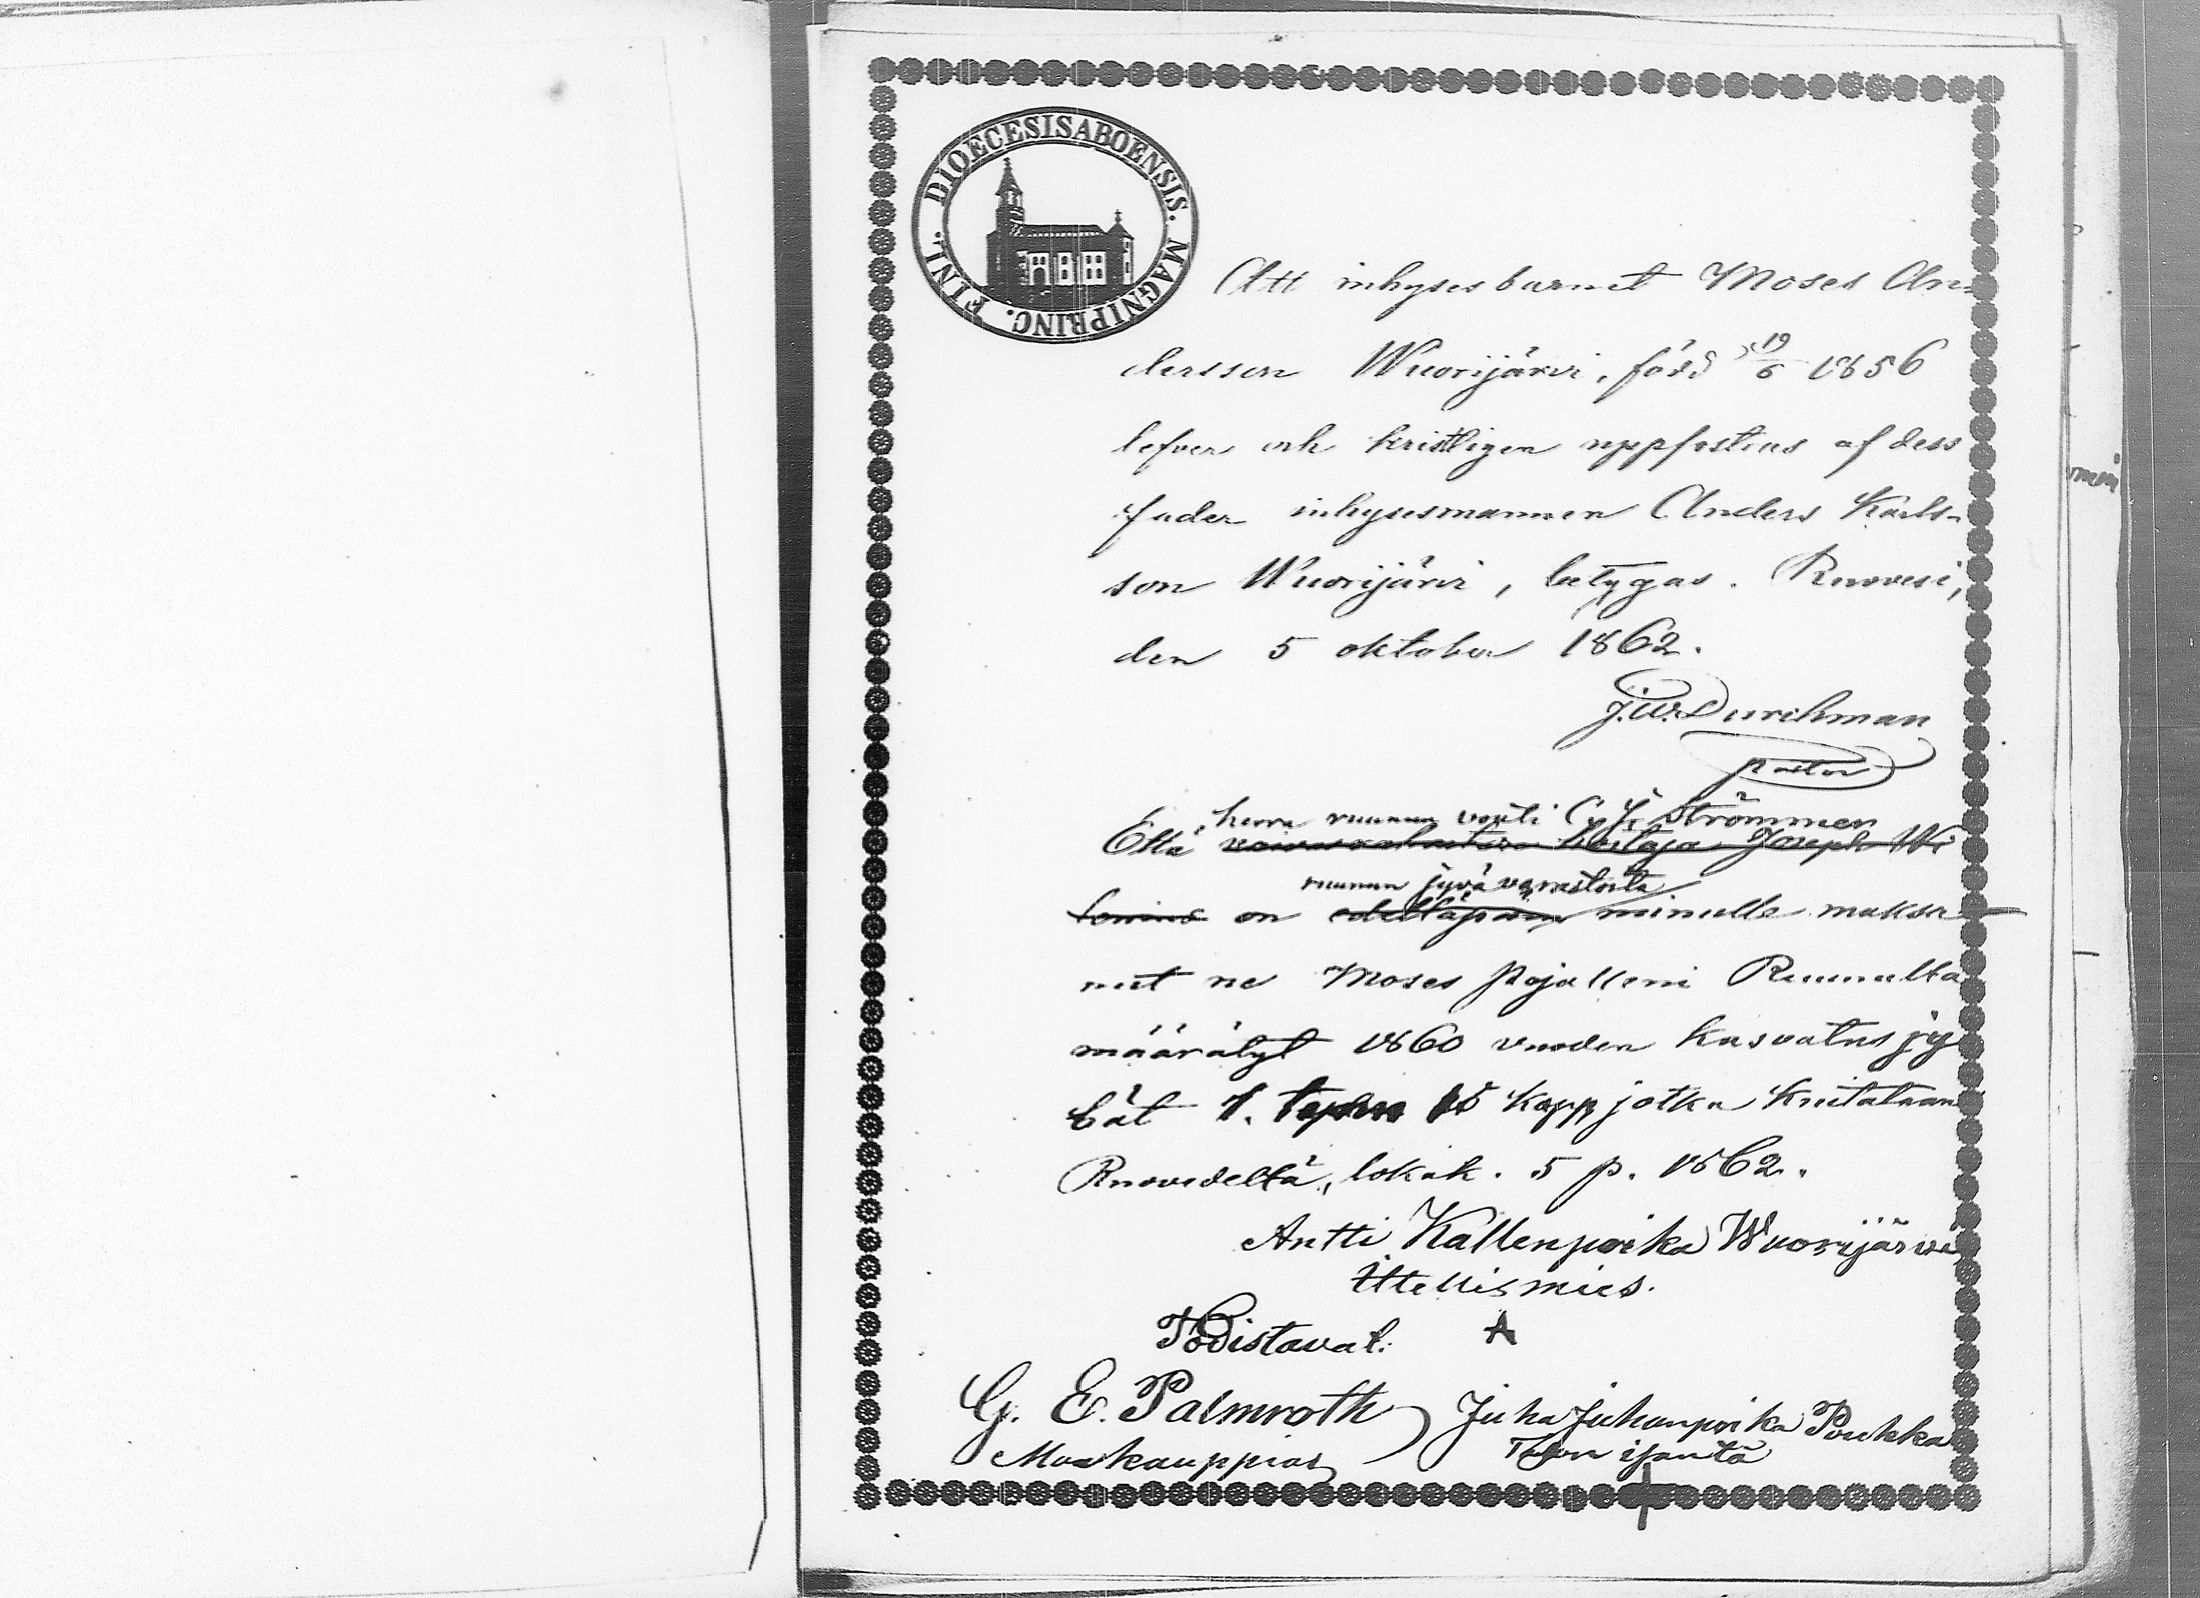 DIOECESIS ABOENSIS. MAGNI PRINC. FINL.
Att inhyses barnet Moses An-
dersson Wuorijärvi, född 19/6 1856
lefver och kristligen uppfostras af dess
fader inhysesmannen Anders Karls-
son Wuorijärvi, betygas. Ruovesi,
den 5 oktober 1862.
J. W. Durchman
pastor
herra ruunun vouti C. J. Strömmer
Että vaivaiskahuitsia hoitaja Joseph Wi
ruunun jyvävarastosta
lenius on edeltäpäin minulle maksa
nut ne Moses Pojalleni Ruunulta
määrätyt 1860 vuoden kasvatus jy
vät 1. tynn 15 kapp jotka kuitataan
Ruovedeltä, lokak. 5 p. 1862.
Antti Kallenpoika Wuorijärvi
Itellismies.
Todistavat:
G. E. Palmroth Juha Juhanpoika Poukka
Maakauppias Talon isäntä